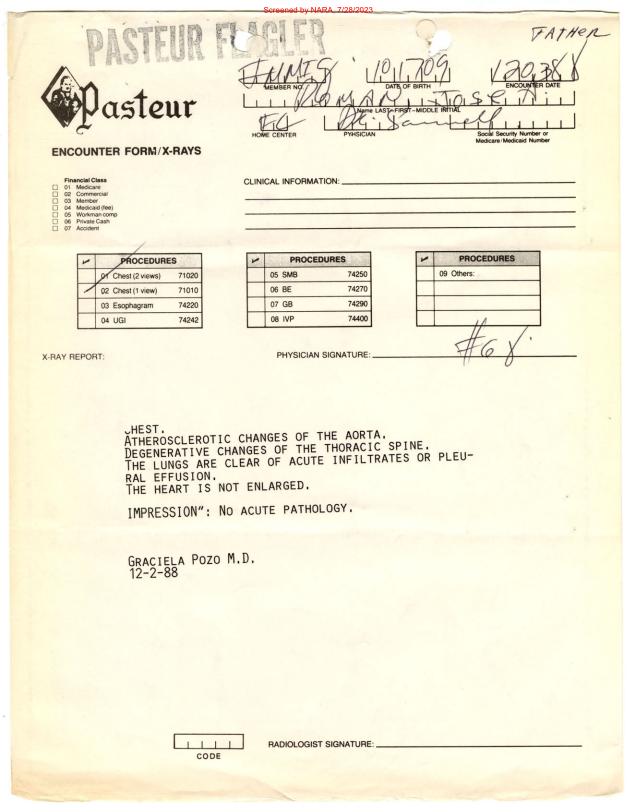 Screened by NARA, 7/28/2023
FATHER
PASTEUR FLAGLER
MEMBER NO. DATE OF BIRTH ENCOUNTER DATE
Pasteur
ROMAN JOSE A.
Name LAST-FIRST-MIDDLE INITIAL
HOME CENTER PYHSICIAN Social Security Number or
Medicare/Medicaid Number
ENCOUNTER FORM/X-RAYS
Financial Class
01 Medicare
02 Commercial
03 Member
04 Medicaid (fee)
05 Workman comp
06 Private Cash
07 Accident
CLINICAL INFORMATION:
PROCEDURES
01 Chest (2 views) 71020
02 Chest (1 view) 71010
03 Esophagram 74220
04 UGI 74242
PROCEDURES
05 SMB 74250
06 BE 74270
07 GB 74290
08 IVP 74400
PROCEDURES
09 Others:
X-RAY REPORT: PHYSICIAN SIGNATURE:
CHEST.
ATHEROSCLEROTIC CHANGES OF THE AORTA.
DEGENERATIVE CHANGES OF THE THORACIC SPINE.
THE LUNGS ARE CLEAR OF ACUTE INFILTRATES OR PLEU-
RAL EFFUSION.
THE HEART IS NOT ENLARGED.
IMPRESSION": NO ACUTE PATHOLOGY.
GRACIELA POZO M.D.
12-2-88
CODE
RADIOLOGIST SIGNATURE: